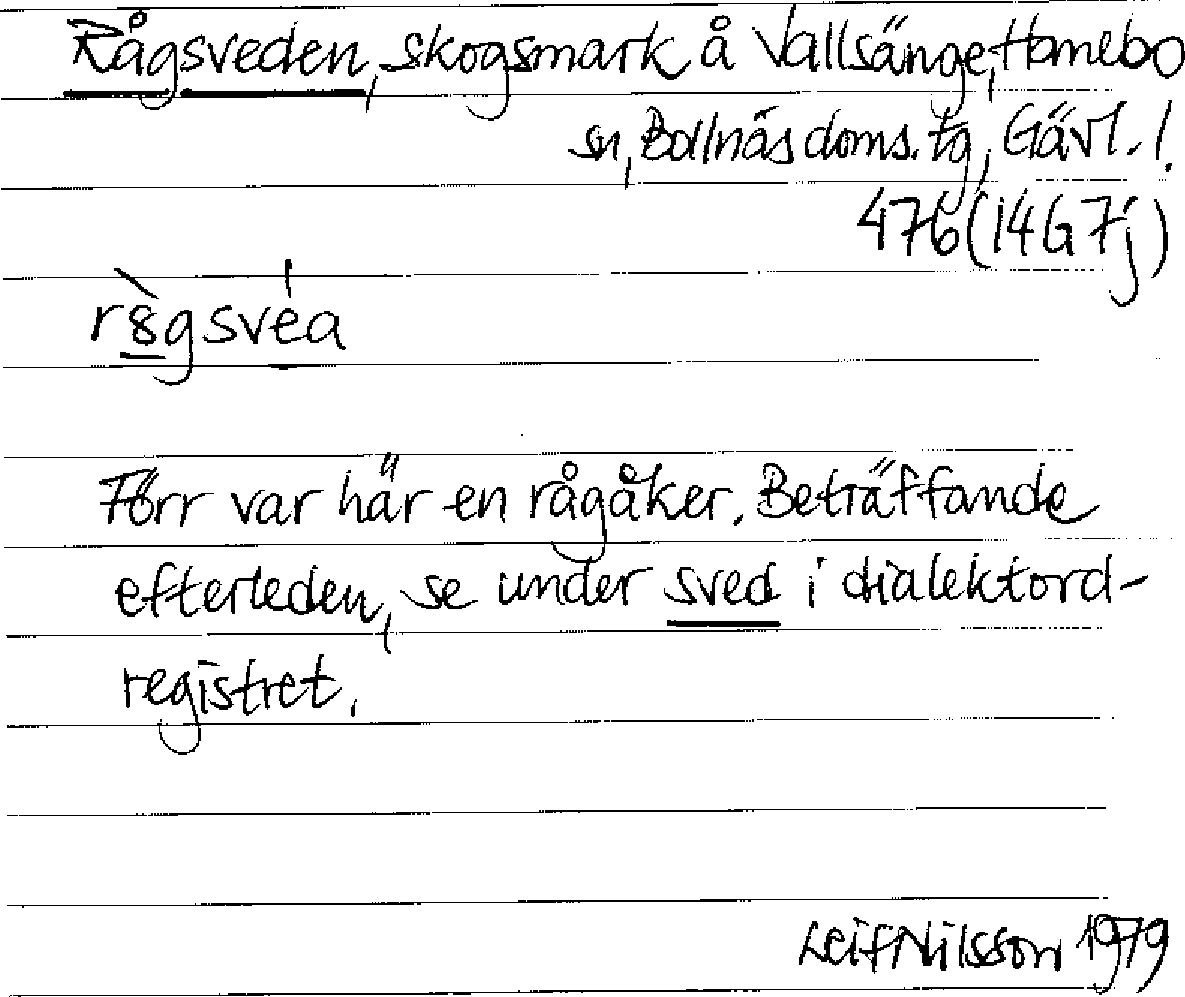 Rågsveden, skogsmark å Vallsänge, Hanebo
sn, Bollnäs doms. tg, Gävl. l.
476 (14G7j)
Förr var här en rågåker. Beträffande
efterleden, se under sved i dialektord-
registret.
Leif Nilsson 1979